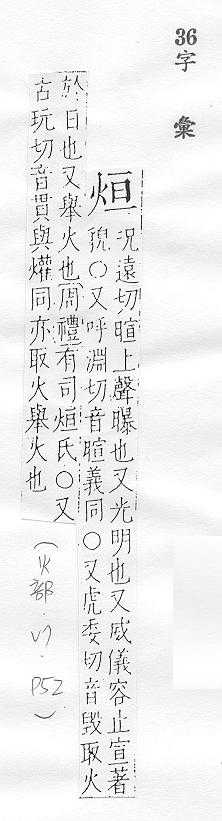 36字彙
烜
況遠切暄上聲曝也又光明也又威儀容止宣著
貌○又呼淵切音暄義同○又虎委切音毀取火
於日也又舉火也周禮有司烜氏○又
古玩切音貫與爟同亦取火舉火也
(火部.V7.P52)